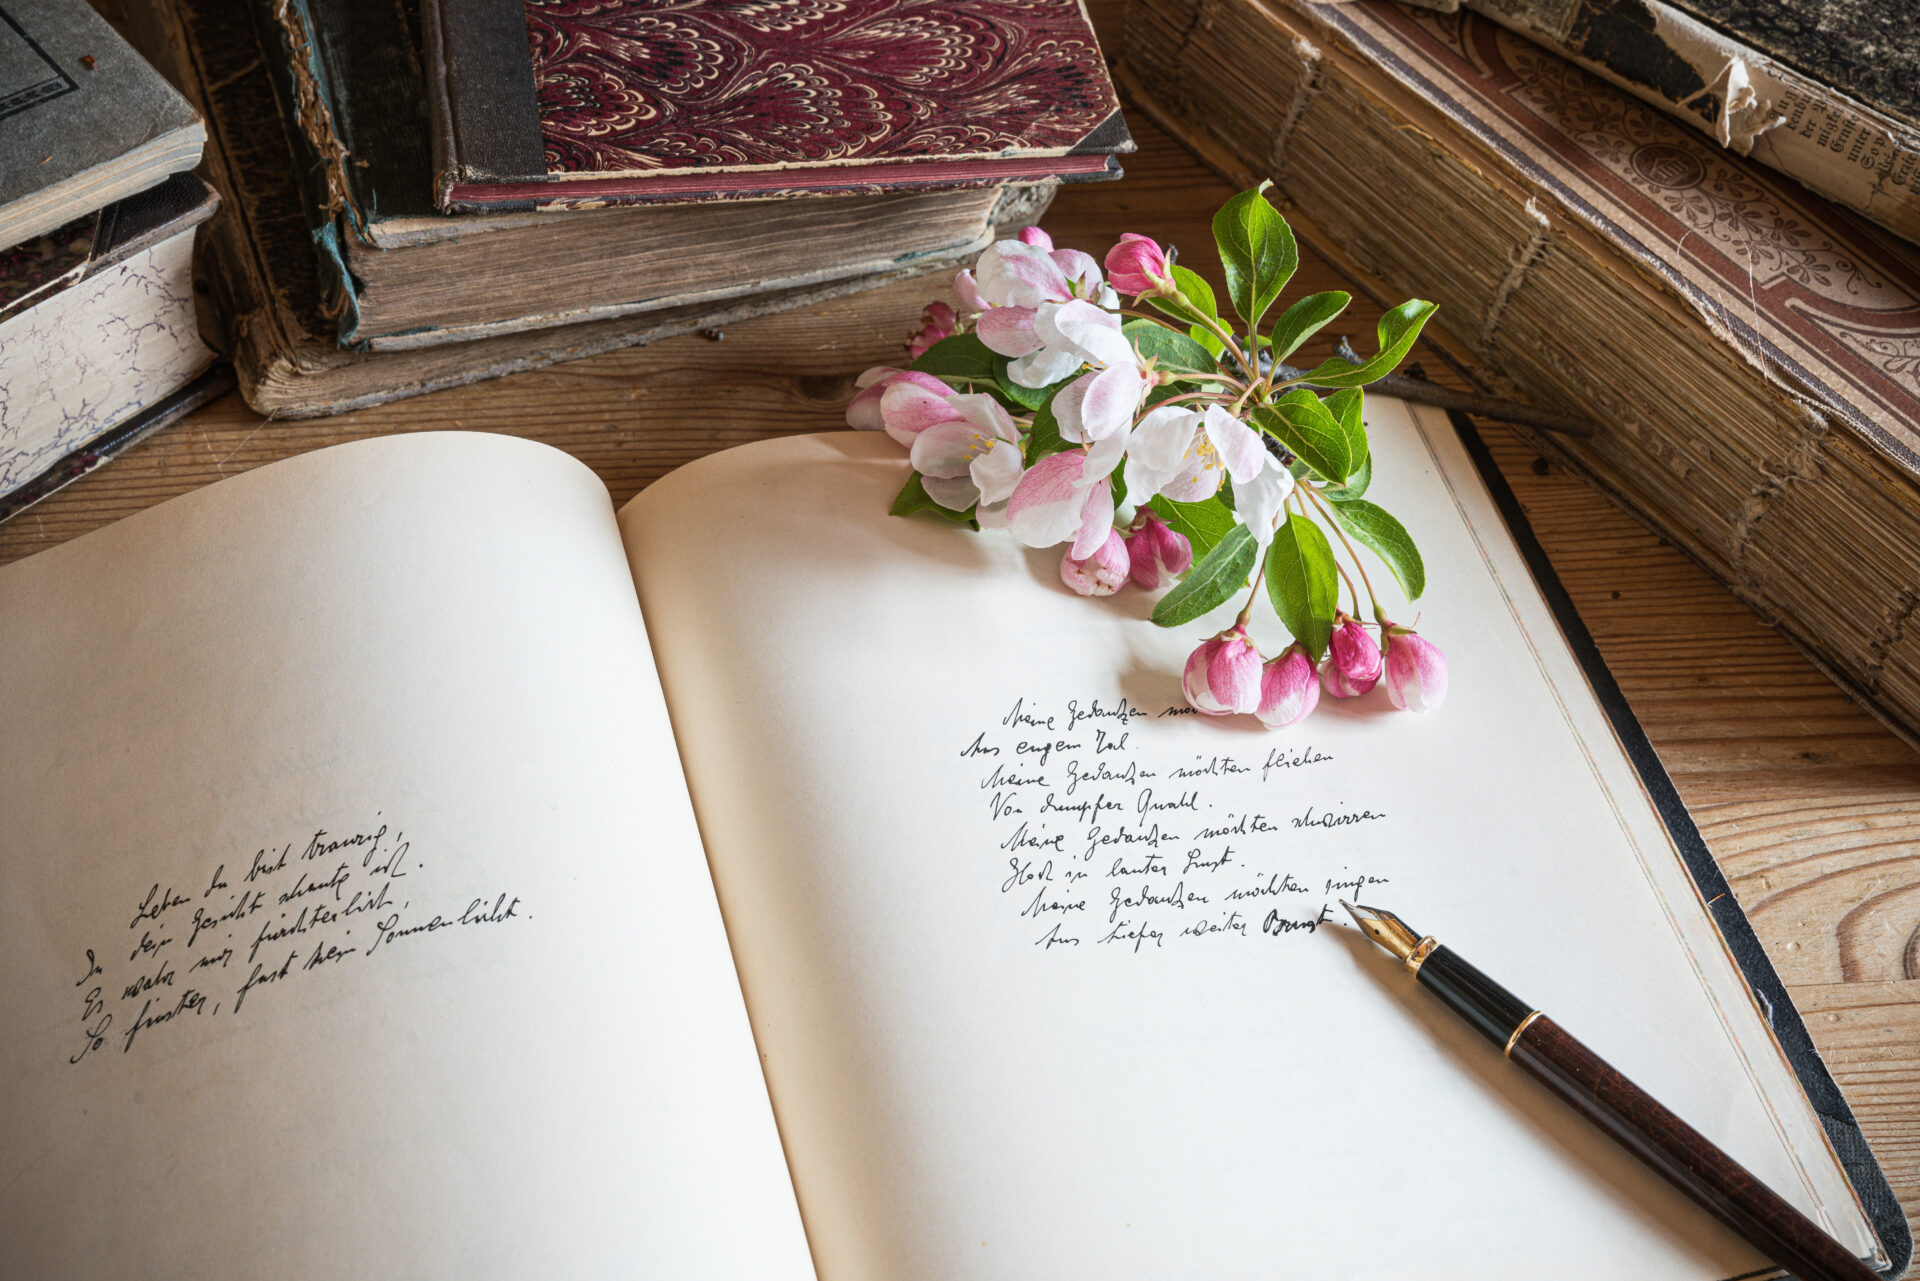 Leben du bist traurig,
In dein Gesicht schaute ich.
Es mir fürchterlich,
So finster, fast kein Sonnenlicht.
Meine Gedanken
Aus engem Tal.
Meine Gedanken möchten fliehen
Von dumpfer Quahl.
Meine Gedanken möchten schwirren
Hoch in lauter Lust.
Meine Gedanken möchten singen
Aus tiefer weiter Brust.